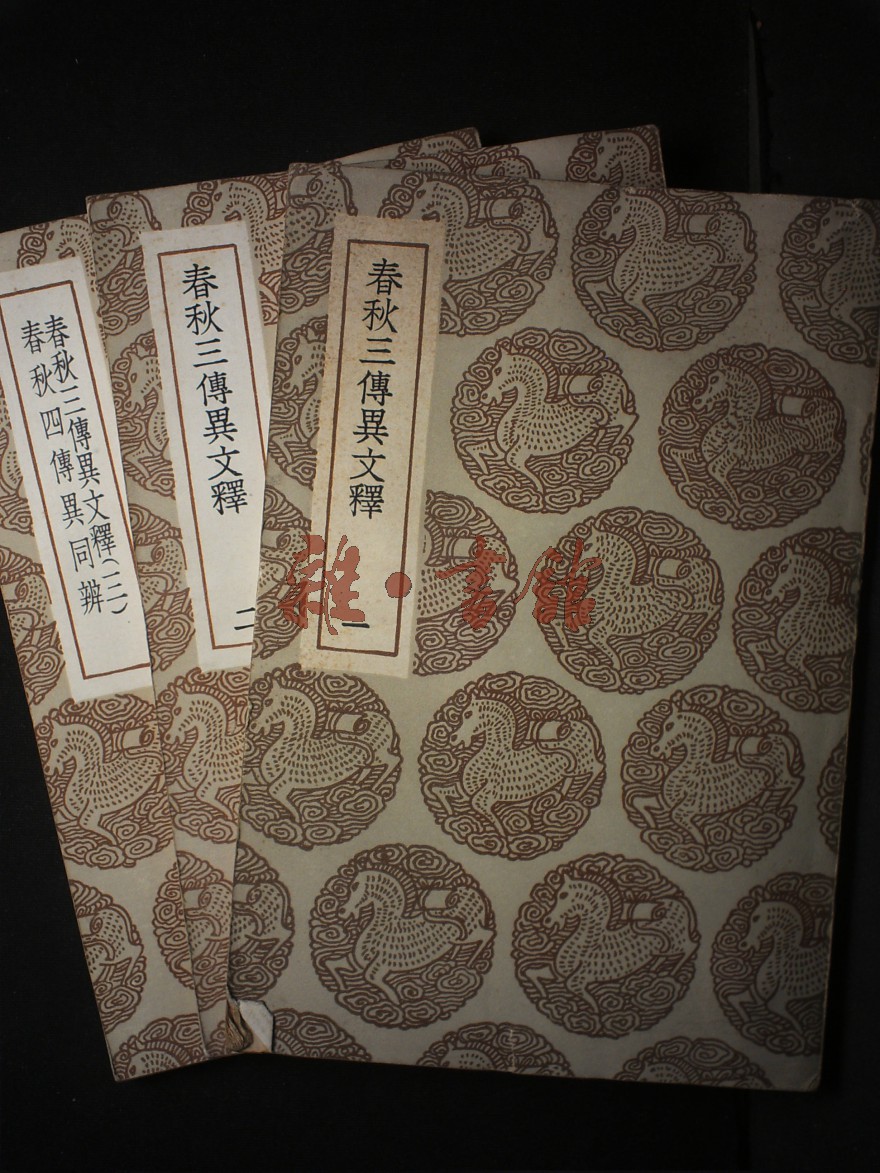 春秋三傳異文釋
一
春秋三傳異文釋
二
春秋三傳異文釋(三)
春秋四傳異同辨
雜·書館